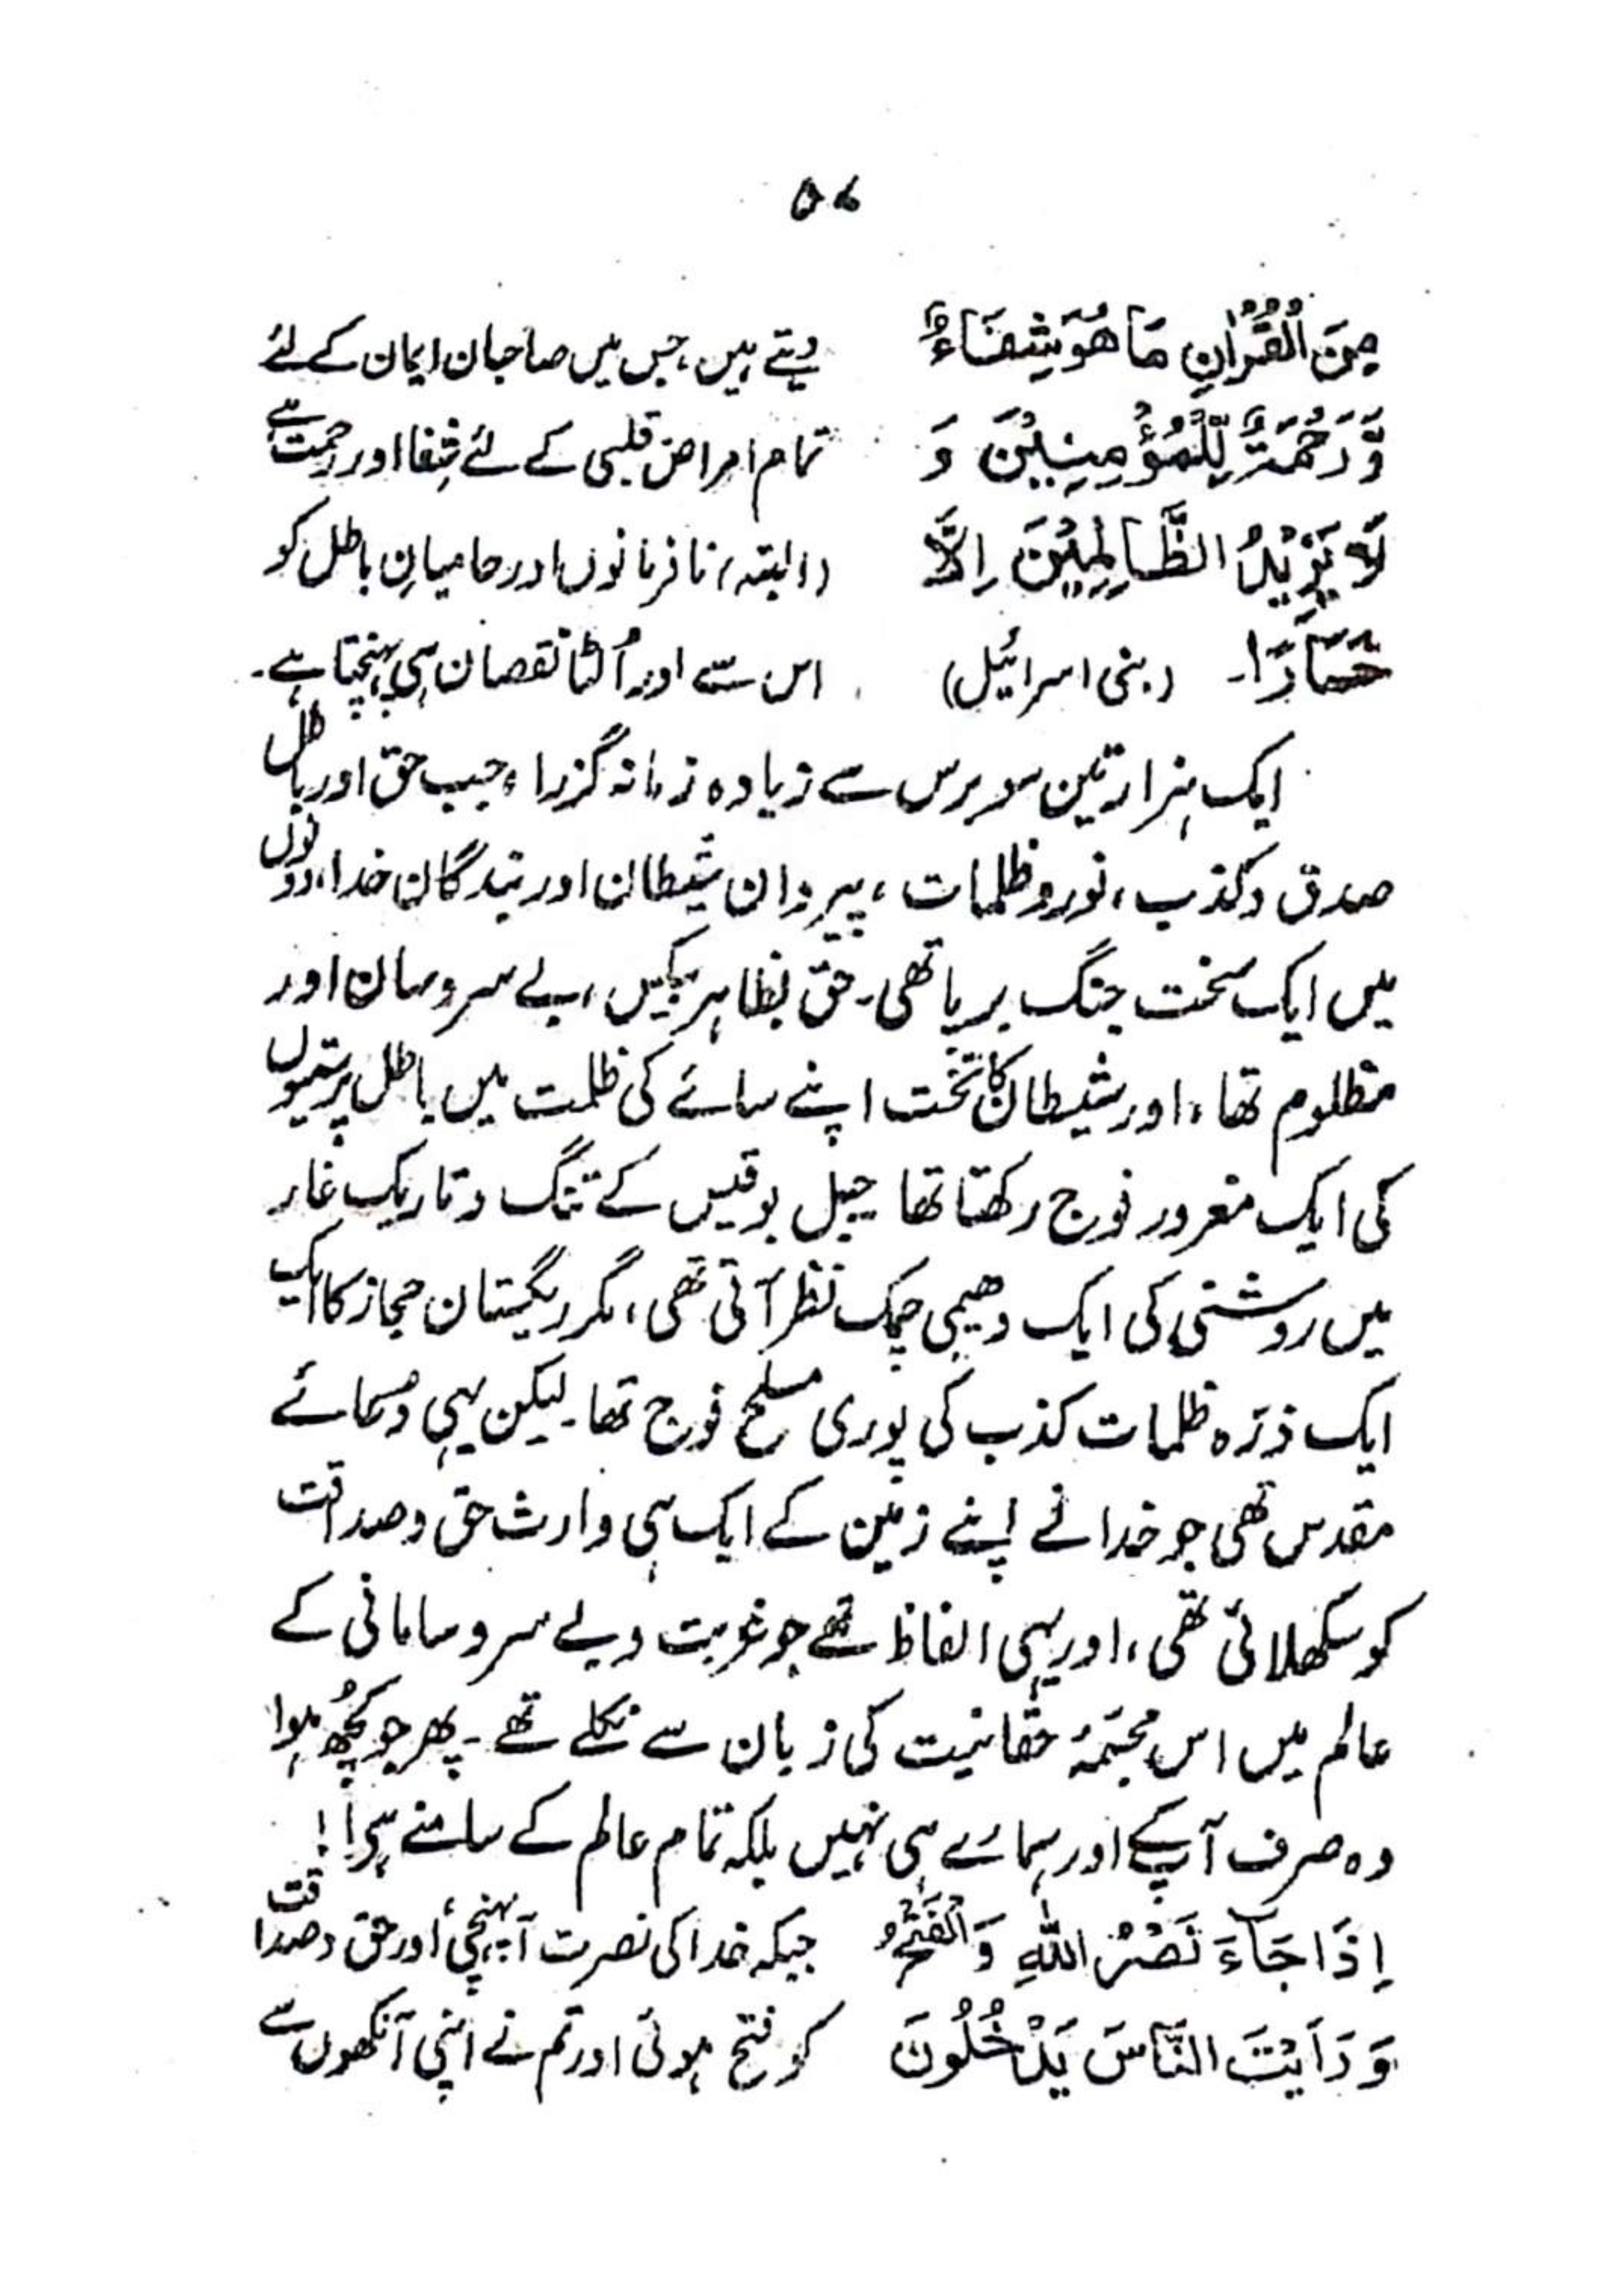 ۵۶
مِنَ الْقُرْاٰنِ مَا هُوَ شِفَاءٌ دیتے ہیں، جس میں صاحبان ایمان کے لئے
وَّ رَحْمَةٌ لِّلْمُؤْمِنِيْنَ وَ تمام امراض قلبی کے لئے شفا اور رحمت ہے
لَا يَزِيْدُ الظَّالِمِيْنَ اِلَّا (البتہ) نافرمانوں اور حامیانِ باطل کو
خَسَارًا۔ (بنی اسرائیل) اس سے اور اُلٹا نقصان ہی پہنچتا ہے۔
ایک ہزار تین سو برس سے زیادہ زمانہ گزرا، جب حق اور باطل
صدق و کذب، نور و ظلمات، پیروان شیطان اور بندگان خدا، دونوں
میں ایک سخت جنگ برپا تھی۔ حق بظاہر بیکس، بے سروسامان اور
مظلوم تھا، اور شیطان کا تخت اپنے سائے کی ظلمت میں باطل پرستیوں
کی ایک مغرور فوج رکھتا تھا جبل بوقبیس کے تنگ و تاریک غار
میں روشنی کی ایک دھیمی چمک نظر آتی تھی، مگر ریگستان حجاز کا ایک
ایک ذرّہ ظلمات کذب کی پوری مسلح فوج تھا۔ لیکن یہی دعائے
مقدس تھی جو خدا نے اپنے زمین کے ایک ہی وارث حق و صداقت
کو سکھلائی تھی، اور یہی الفاظ تھے جو غربت و بے سروسامانی کے
عالم میں اس مجسّمۂ حقانیت کی زبان سے نکلے تھے۔ پھر جو کچھ ہوا
وہ صرف آپ کے اور ہمارے ہی نہیں بلکہ تمام عالم کے سامنے ہے!
اِذَا جَاءَ نَصْرُ اللّٰهِ وَ الْفَتْحُ جبکہ خدا کی نصرت آ پہنچی اور حق و صداقت
وَ رَاَيْتَ النَّاسَ يَدْخُلُوْنَ کو فتح ہوئی اور تم نے اپنی آنکھوں سے